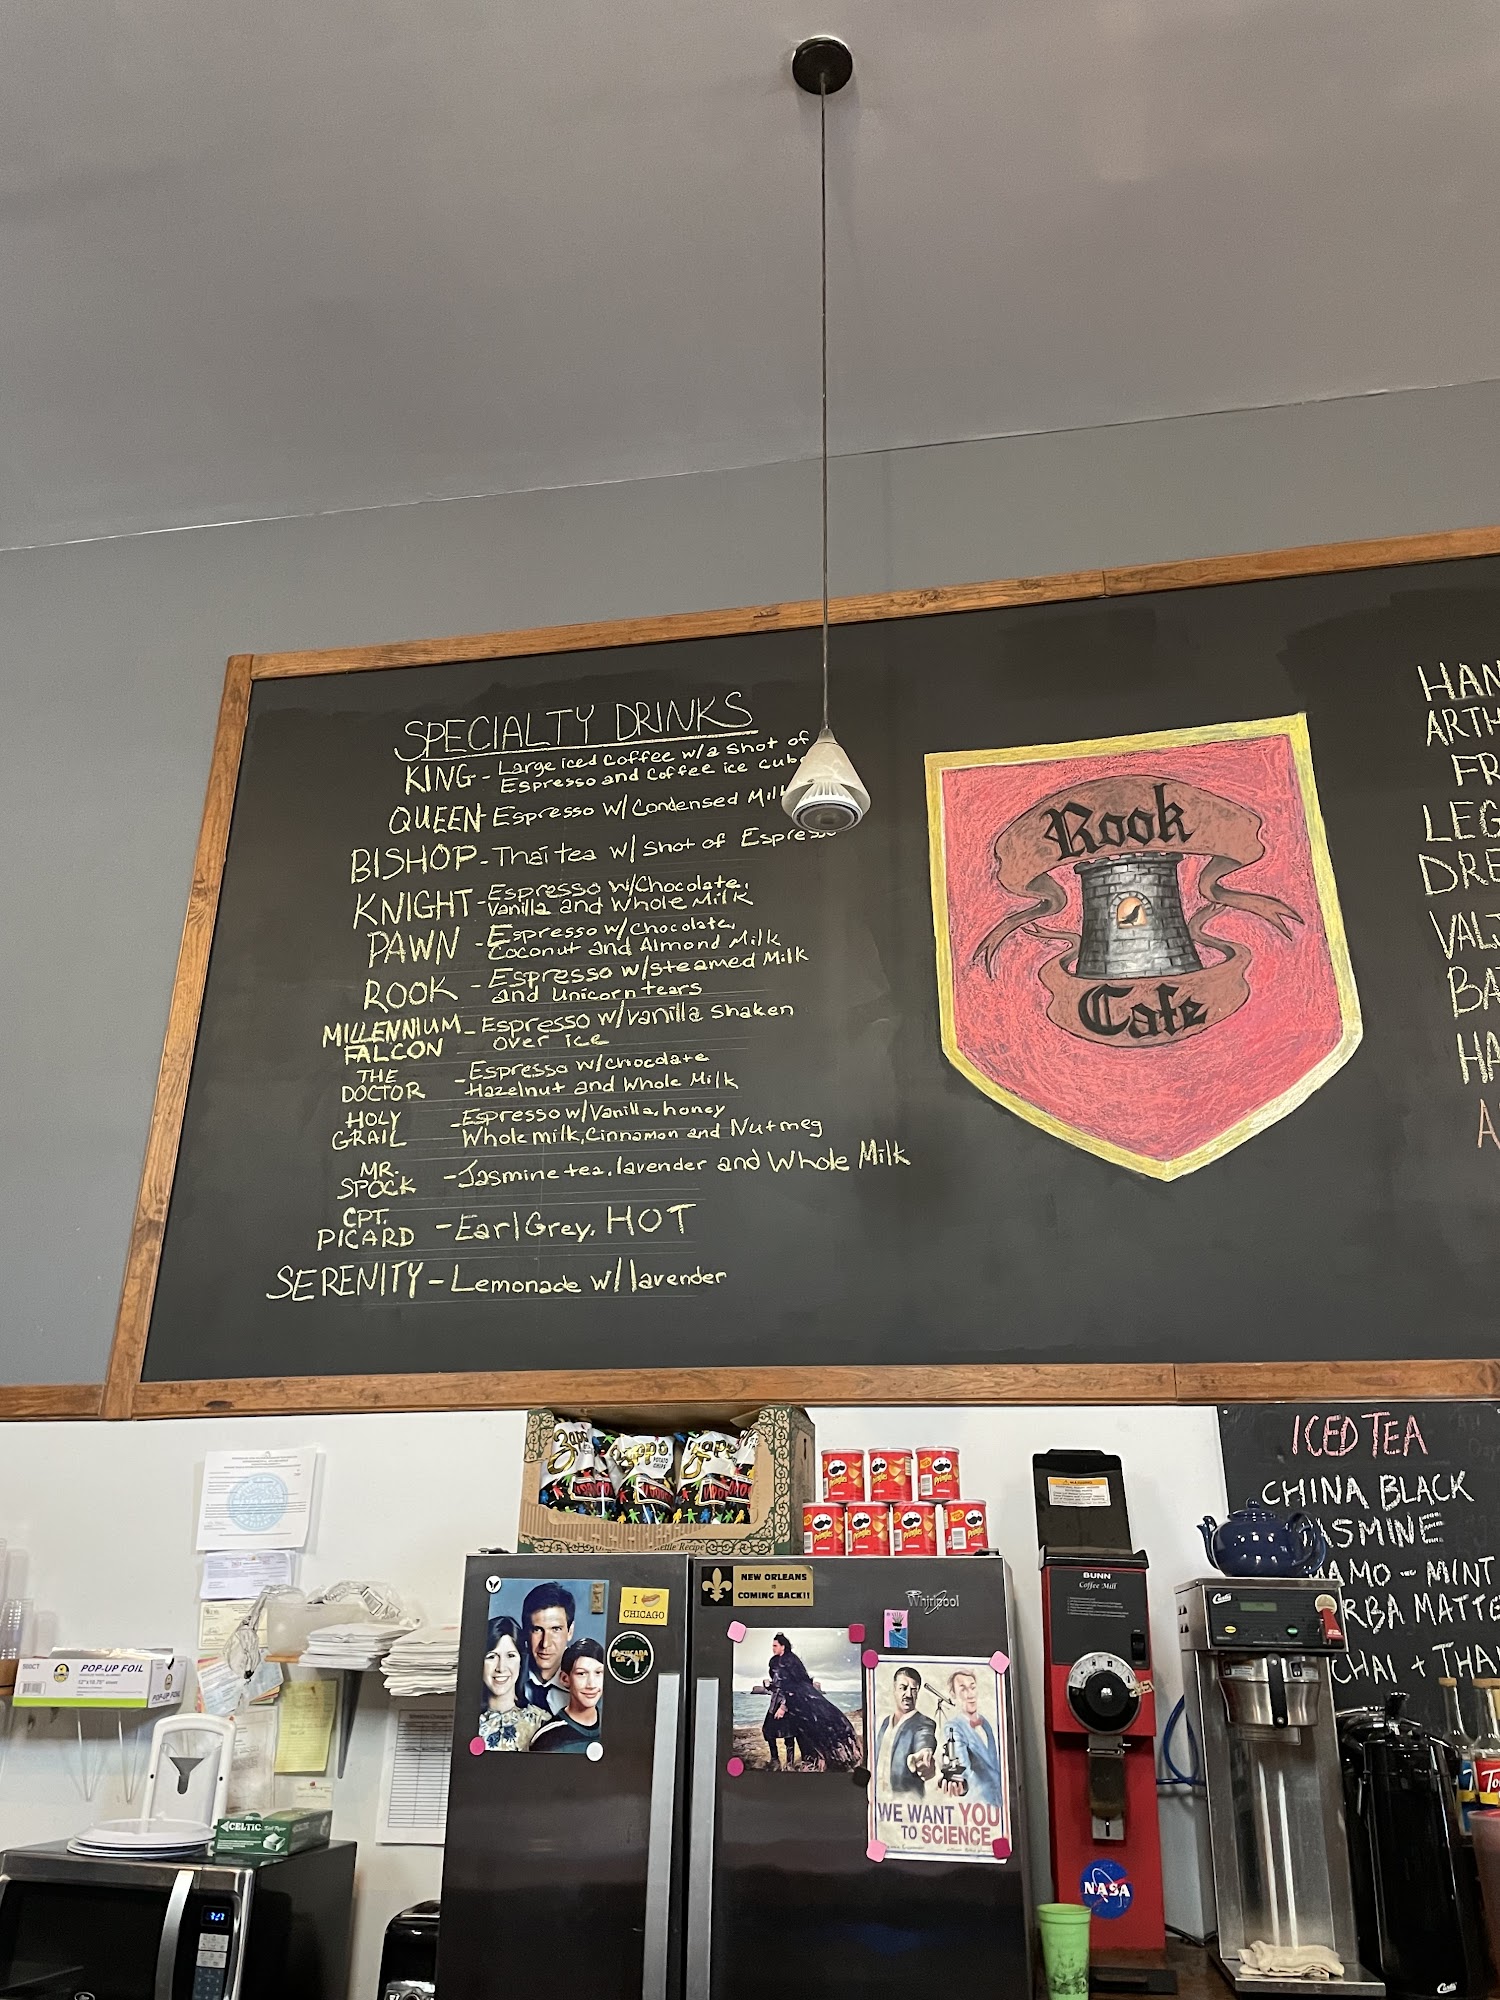 SPECIALTY DRINKS
KING - Large iced coffee w/a shot of
Espresso and coffee ice cubes
QUEEN - Espresso w/ Condensed Milk
BISHOP - Thai tea w/ shot of Espresso
KNIGHT - Espresso w/Chocolate,
Vanilla and Whole Milk
PAWN - Espresso w/chocolate,
Coconut and Almond Milk
ROOK - Espresso w/steamed Milk
and unicorn tears
MILLENNIUM FALCON - Espresso w/vanilla shaken
over ice
THE DOCTOR - Espresso w/chocolate
Hazelnut and Whole Milk
HOLY GRAIL - Espresso w/Vanilla, honey
Whole milk, Cinnamon and Nutmeg
MR. SPOCK - Jasmine tea, lavender and Whole Milk
CPT. PICARD - Earl Grey, HOT
SERENITY - Lemonade w/ lavender
Rook
Cafe
HAN
ARTH
FR
LEG
DRE
VAL
BA
HA
A
ICED TEA
CHINA BLACK
JASMINE
MAMO - MINT
RBA MATTE
CHAI + THA
Zapp's
Zapp's
POTATO CHIPS
Zapp's
VOODOO
Kettle Recipe
Pringles
Pringles
Pringles
Pringles
Pringles
Pringles
Pringles
NEW ORLEANS
IS
COMING BACK!!
Whirlpool
I
CHICAGO
WE WANT YOU
TO SCIENCE
WARNING
BUNN
Coffee Mill
NASA
Curtis
Curtis
500CT
POP-UP FOIL
12"x10.75"
POP-UP FOIL
CELTIC
To